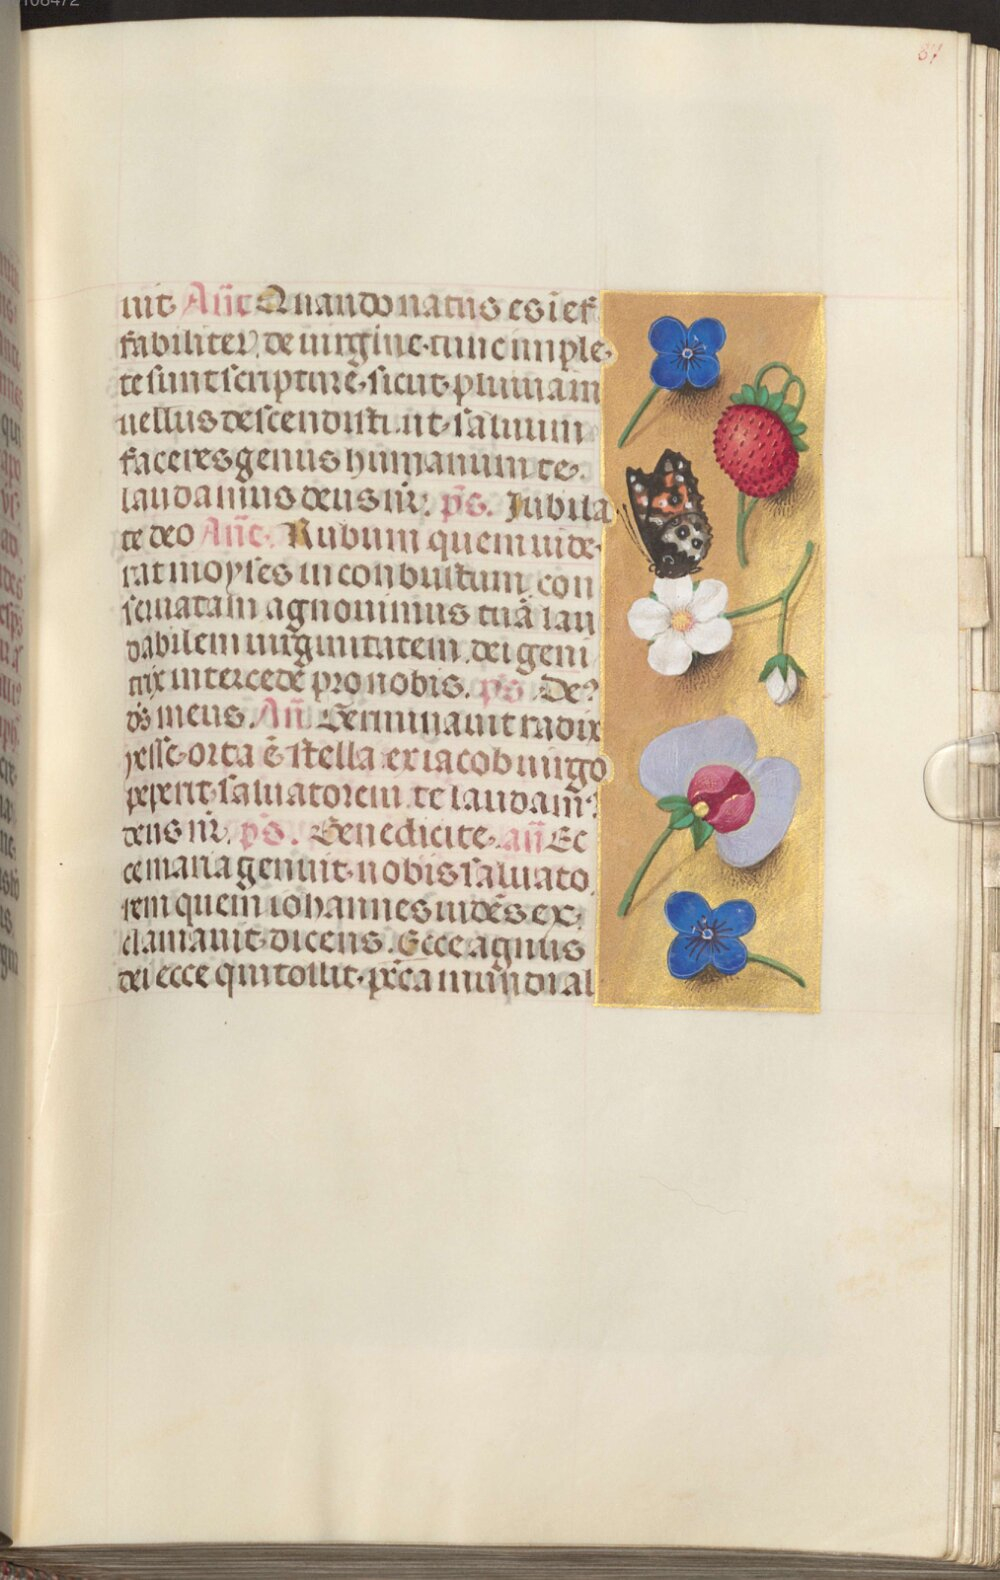 108472
87
uit Añc Quando natus es ief
fabiliter de uirgine tunc imple
te sunt scripture sicut pluuia in
uellus descendisti ut saluum
faceres genus humanum te
laudamus deus nr̄. ps̄. Jubila
te deo Añc. Rubum quem uide
rat moyses inconbustum con
seruatam agnouimus tuā lau
dabilem uirginitatem dei geni
trix intercede pro nobis. ps̄ De⁹
ds̄ meus. Añ. Germinauit radix
yesse orta ē stella ex iacob uirgo
peperit saluatorem te laudam⁹
deus nr̄. ps̄. Benedicite. añ Ec
ce maria genuit nobis saluato
rem quem iohannes uidēs ex
clamauit dicens. Ecce agnus
dei ecce qui tollit pc̄ca mundi al